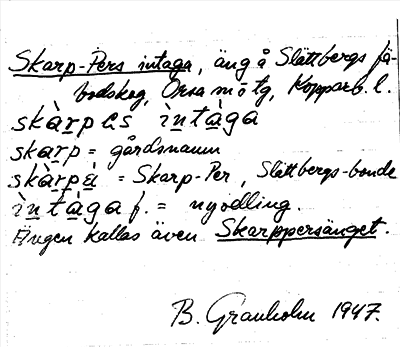 Skarp-Pers intaga, äng å Slättbergs fä-
bodskog, Orsa m o tg, Kopparb. l.
skàrpes ìntàga
skarp = gårdsnamn
skàrpè = Skarp-Per, Slättbergs-bonde
ìntàga f. = nyodling.
Ängen kallas även Skarppersänget.
B. Granholm 1947.